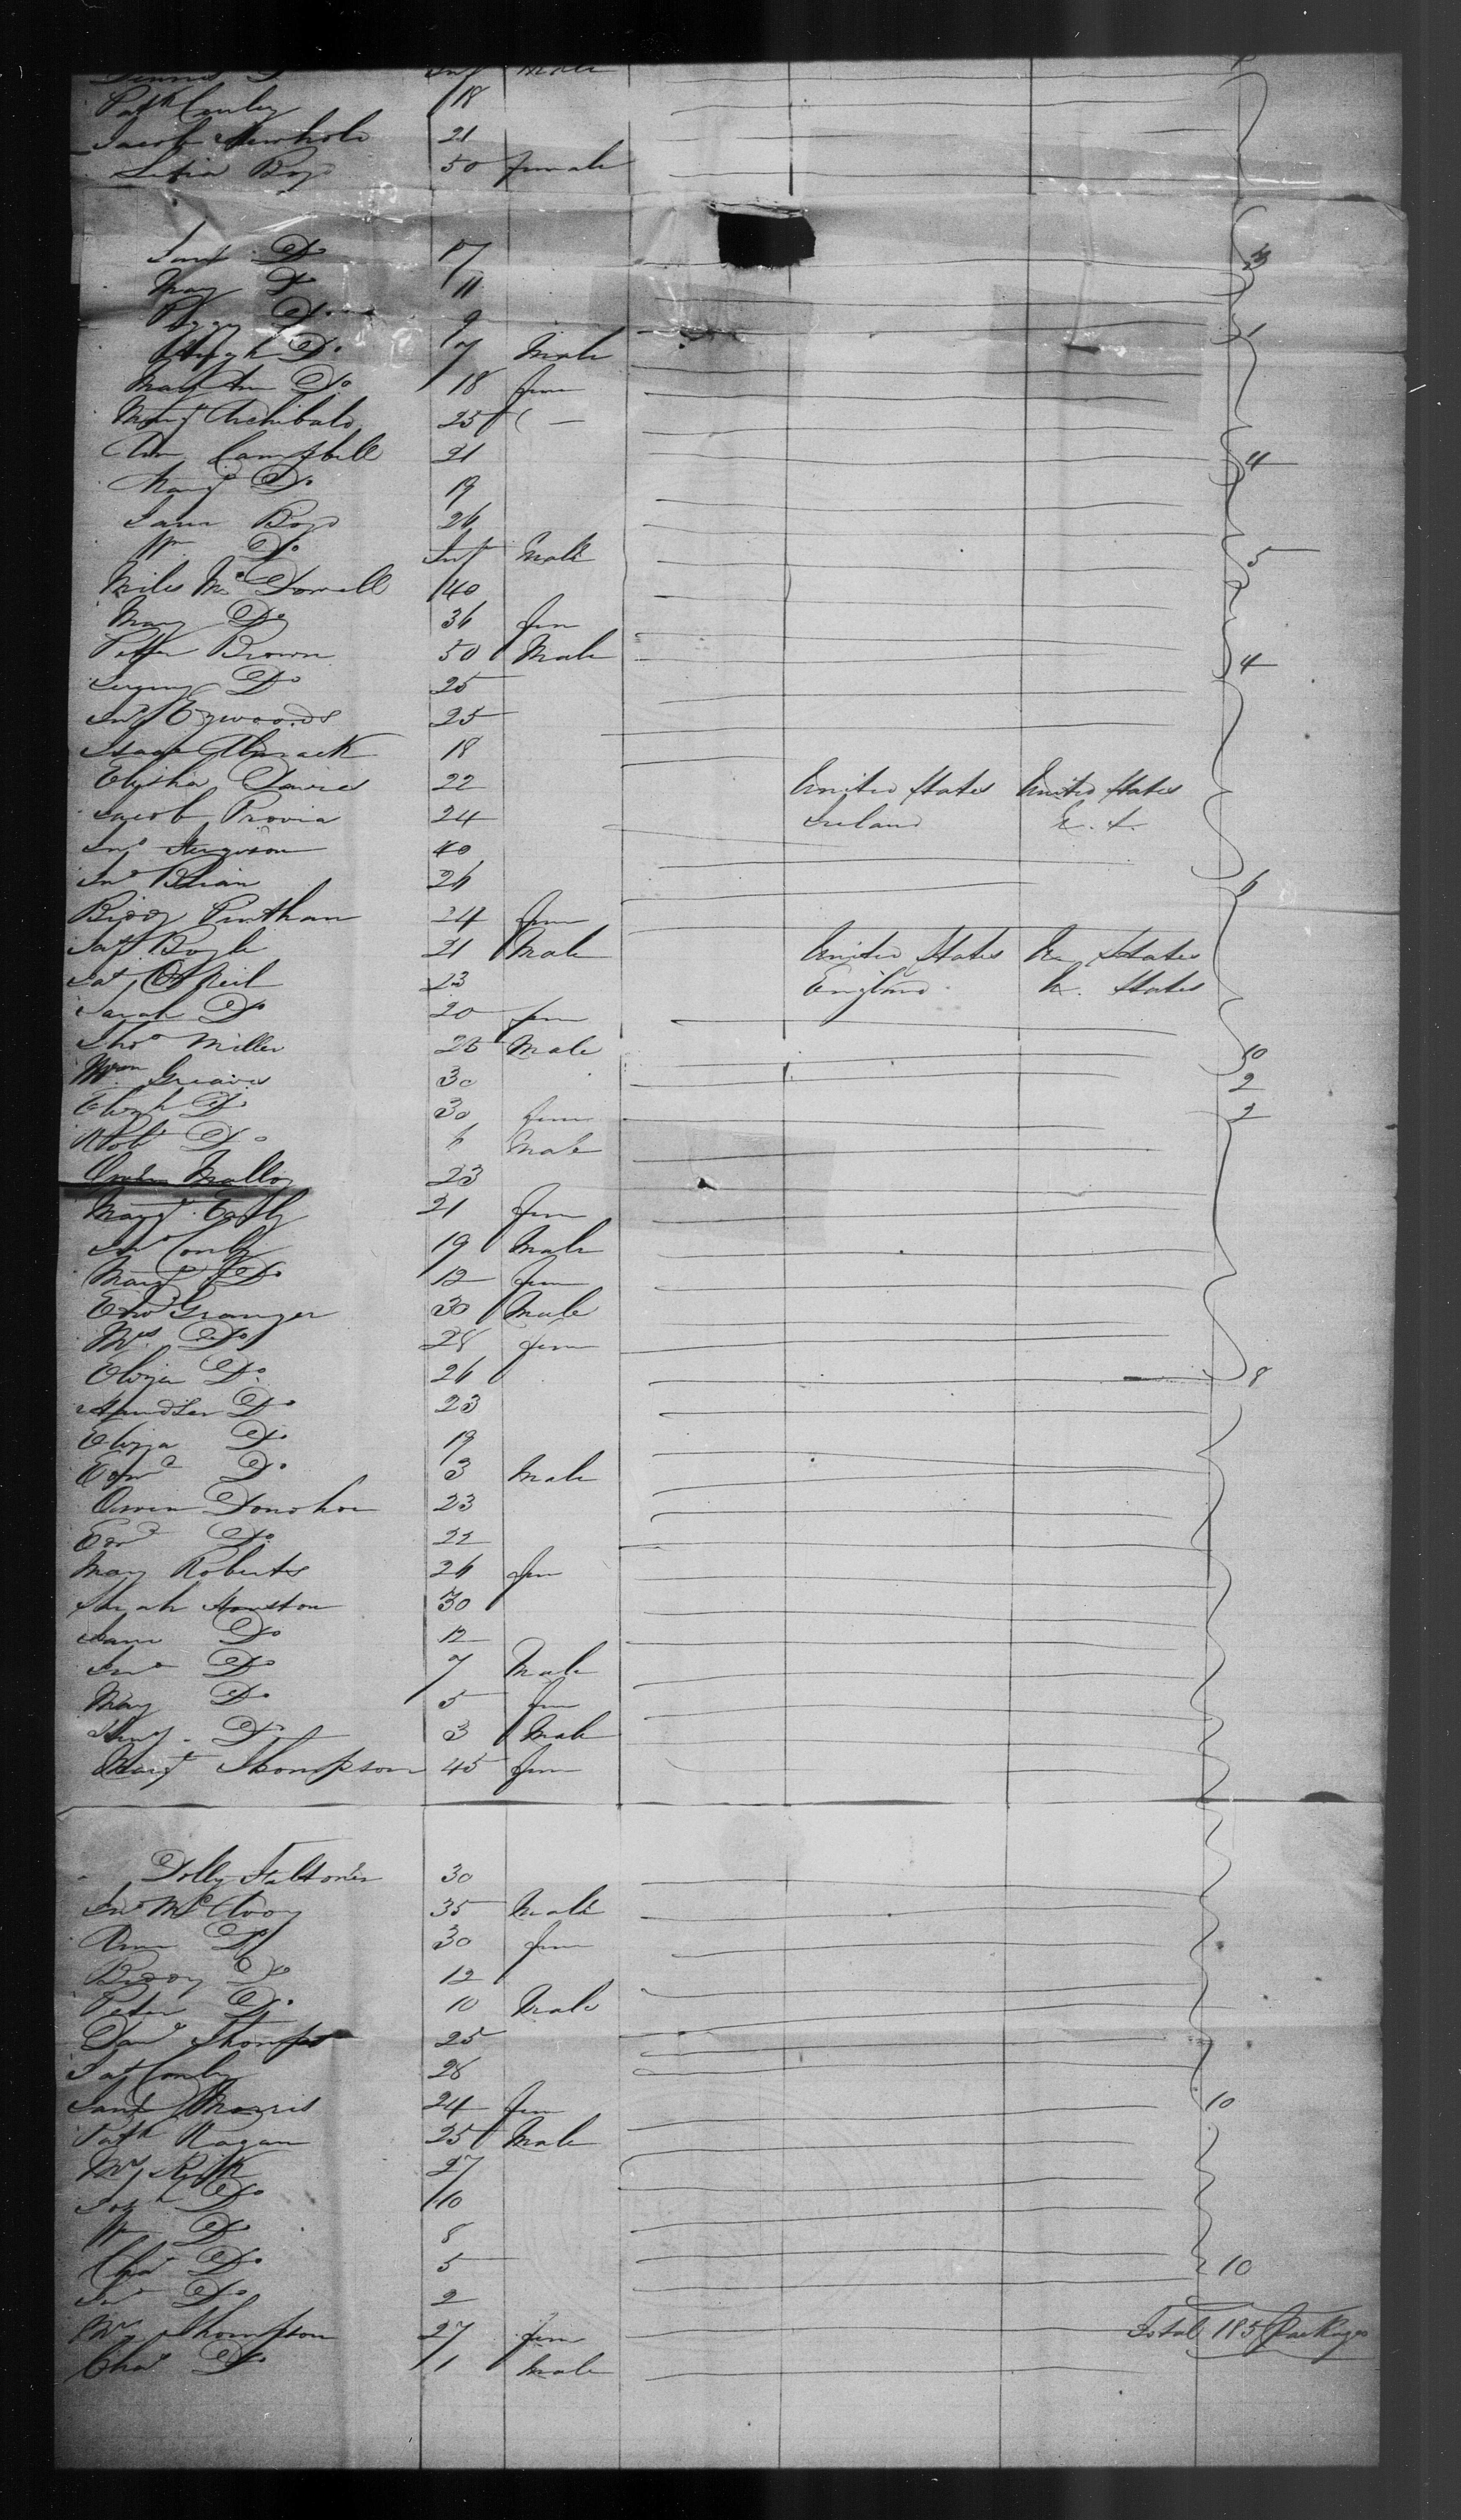 Dennis Do Inf Male
Patk Conley 18
Jacob Newhold 21
Letia Boyd 50 female
Jane Do 17 3
Mary Do 11
Peggy Do 9 1
Hugh Do 7 Male
Mary Ann Do 18 fem
Margt Archibald 25
Ann Campbell 21 4
Margt Do 19
Jane Boyd 26
Wm Do Inf Male 5
Miles McDowell 40
Mary Do 36 fem
Peter Brown 50 Male 4
Do 25
Jno 25
Isaac 18
Elijsha Davies 22 United States United States
Jacob Provia 24 Ireland U. S.
Jno Ferguson 40
Jno Brian 26 6
Biddy 24 fem
Jas Boyle 21 Male United States Un States
Pat O Neil 23 England U. States
Sarah Do 20 fem
Thos Miller 25 Male 10
Wm Greaves 30 2
Elizth Do 30 fem 2
Robt Do 6 Male
Owen Malloy 23
Margt Early 21 fem
Jno Conly 19 Male
Margt Do 12 fem
Edwd Granger 30 Male
Mrs Do 28 fem
Eliza Do 26 8
Do 23
Eliza Do 19
Edwd Do 3 Male
Owen Donohoe 23
Edwd Do 22
Mary Roberts 26 fem
Sarah Houston 30
Jane Do 12
Jno Do 7 Male
Mary Do 5 fem
Henry Do 3 Male
Margt Thompson 45 fem
Dolly 30
Jno McAvoy 35 Male
Ann Do 30 fem
Biddy Do 12
Peter Do 10 Male
Danl Thompson 25
Pat Conly 28
Jane Morris 24 fem 10
Patk Kagan 25 Male
Wm Kirk 27
Josh Do 10
Wm Do 8
Chas Do 5 10
Jno Do 2
Mrs Thompson 27 fem Total 185 Packages
Chas Do 1 Male